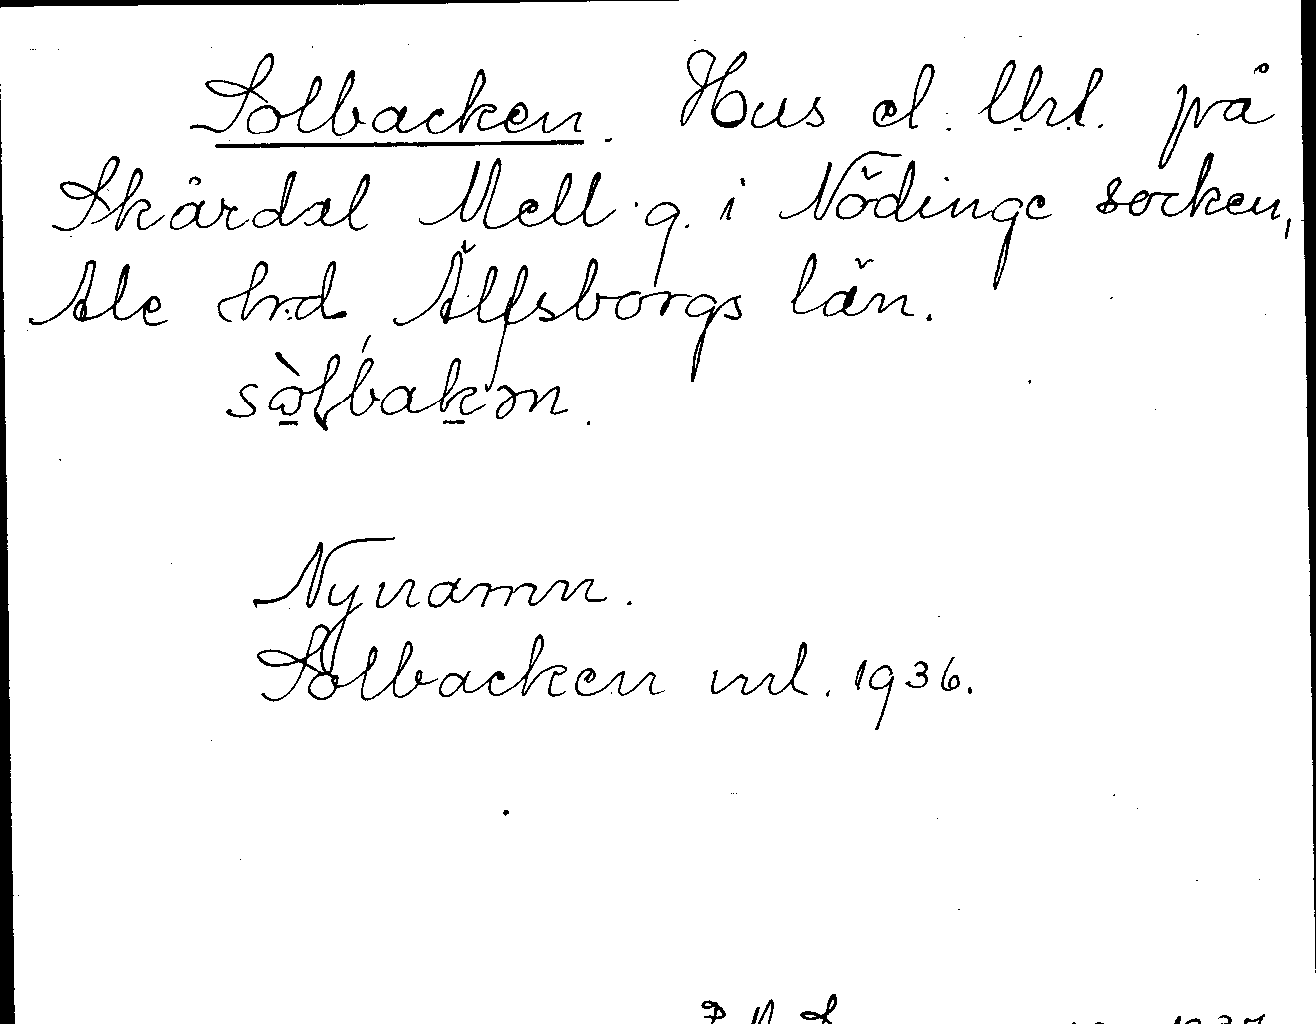 Solbacken. Hus el. lht. på
Skårdal Mell.g. i Nödinge socken,
Ale hrd, Älfsborgs län.
Nynamn.
Solbacken ml. 1936.
1937